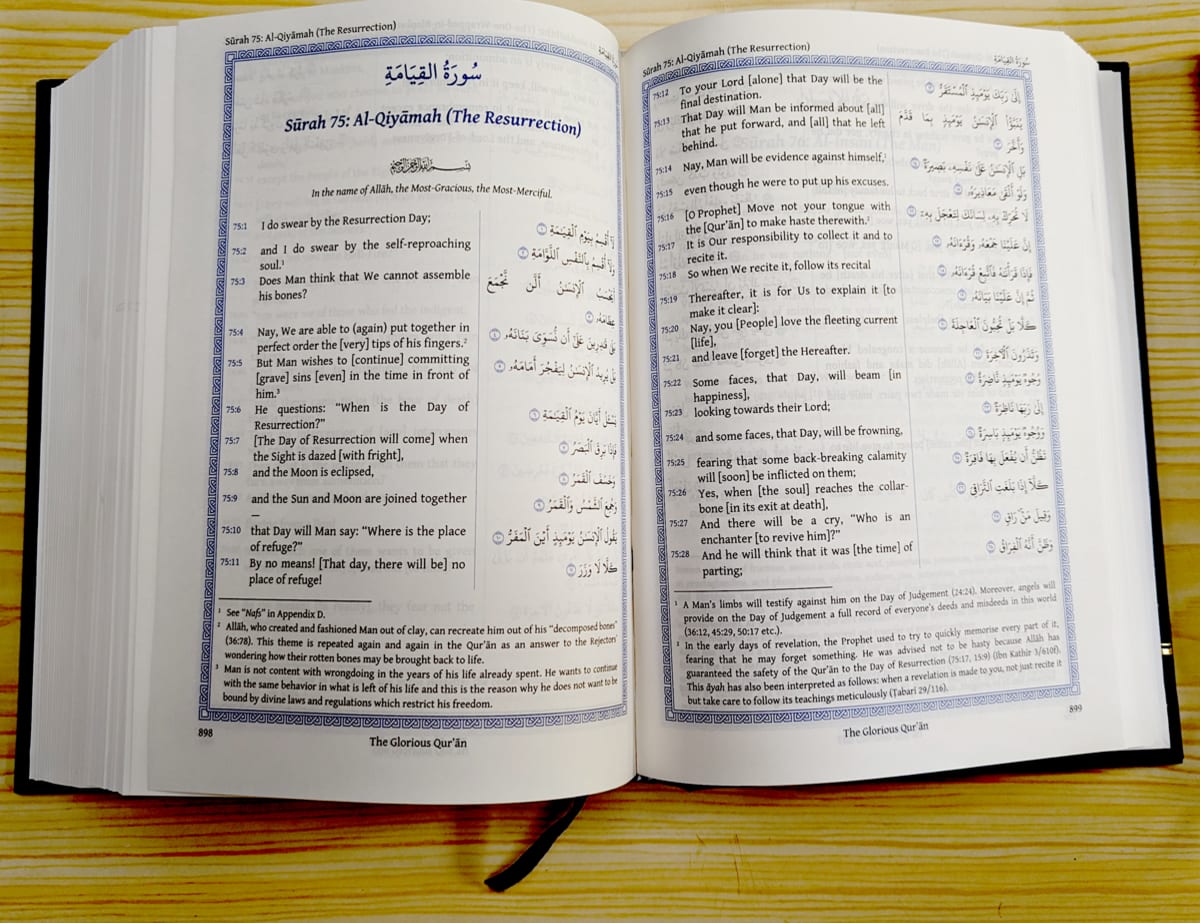 Sūrah 75: Al-Qiyāmah (The Resurrection)
سُورَةُ القِيَامَةِ
Sūrah 75: Al-Qiyāmah (The Resurrection)
In the name of Allāh, the Most-Gracious, the Most-Merciful.
75:1 I do swear by the Resurrection Day;
75:2 and I do swear by the self-reproaching
soul.¹
75:3 Does Man think that We cannot assemble
his bones?
75:4 Nay, We are able to (again) put together in
perfect order the [very] tips of his fingers.²
75:5 But Man wishes to [continue] committing
[grave] sins [even] in the time in front of
him.³
75:6 He questions: “When is the Day of
Resurrection?”
75:7 [The Day of Resurrection will come] when
the Sight is dazed [with fright],
75:8 and the Moon is eclipsed,
75:9 and the Sun and Moon are joined together
—
75:10 that Day will Man say: “Where is the place
of refuge?”
75:11 By no means! [That day, there will be] no
place of refuge!
لَآ أُقْسِمُ بِيَوْمِ ٱلْقِيَٰمَةِ ١
وَلَآ أُقْسِمُ بِٱلنَّفْسِ ٱللَّوَّامَةِ ٢
أَيَحْسَبُ ٱلْإِنسَٰنُ أَلَّن نَّجْمَعَ
عِظَامَهُۥ ٣
بَلَىٰ قَٰدِرِينَ عَلَىٰٓ أَن نُّسَوِّىَ بَنَانَهُۥ ٤
بَلْ يُرِيدُ ٱلْإِنسَٰنُ لِيَفْجُرَ أَمَامَهُۥ ٥
يَسْـَٔلُ أَيَّانَ يَوْمُ ٱلْقِيَٰمَةِ ٦
فَإِذَا بَرِقَ ٱلْبَصَرُ ٧
وَخَسَفَ ٱلْقَمَرُ ٨
وَجُمِعَ ٱلشَّمْسُ وَٱلْقَمَرُ ٩
يَقُولُ ٱلْإِنسَٰنُ يَوْمَئِذٍ أَيْنَ ٱلْمَفَرُّ ١٠
كَلَّا لَا وَزَرَ ١١
¹ See “Nafs” in Appendix D.
² Allāh, who created and fashioned Man out of clay, can recreate him out of his “decomposed bones”
(36:78). This theme is repeated again and again in the Qur’ān as an answer to the Rejectors
wondering how their rotten bones may be brought back to life.
³ Man is not content with wrongdoing in the years of his life already spent. He wants to continue
with the same behavior in what is left of his life and this is the reason why he does not want to be
bound by divine laws and regulations which restrict his freedom.
898
The Glorious Qur’ān
Sūrah 75: Al-Qiyāmah (The Resurrection) سُورَةُ القِيَامَةِ
75:12 To your Lord [alone] that Day will be the
final destination.
75:13 That Day will Man be informed about [all]
that he put forward, and [all] that he left
behind.
75:14 Nay, Man will be evidence against himself,¹
75:15 even though he were to put up his excuses.
75:16 [O Prophet] Move not your tongue with
the [Qur’ān] to make haste therewith.²
75:17 It is Our responsibility to collect it and to
recite it.
75:18 So when We recite it, follow its recital
75:19 Thereafter, it is for Us to explain it [to
make it clear]:
75:20 Nay, you [People] love the fleeting current
[life],
75:21 and leave [forget] the Hereafter.
75:22 Some faces, that Day, will beam [in
happiness],
75:23 looking towards their Lord;
75:24 and some faces, that Day, will be frowning,
75:25 fearing that some back-breaking calamity
will [soon] be inflicted on them;
75:26 Yes, when [the soul] reaches the collar-
bone [in its exit at death],
75:27 And there will be a cry, “Who is an
enchanter [to revive him]?”
75:28 And he will think that it was [the time] of
parting;
إِلَىٰ رَبِّكَ يَوْمَئِذٍ ٱلْمُسْتَقَرُّ ١٢
يُنَبَّؤُا۟ ٱلْإِنسَٰنُ يَوْمَئِذٍۭ بِمَا قَدَّمَ
وَأَخَّرَ ١٣
بَلِ ٱلْإِنسَٰنُ عَلَىٰ نَفْسِهِۦ بَصِيرَةٌ ١٤
وَلَوْ أَلْقَىٰ مَعَاذِيرَهُۥ ١٥
لَا تُحَرِّكْ بِهِۦ لِسَانَكَ لِتَعْجَلَ بِهِۦٓ ١٦
إِنَّ عَلَيْنَا جَمْعَهُۥ وَقُرْءَانَهُۥ ١٧
فَإِذَا قَرَأْنَٰهُ فَٱتَّبِعْ قُرْءَانَهُۥ ١٨
ثُمَّ إِنَّ عَلَيْنَا بَيَانَهُۥ ١٩
كَلَّا بَلْ تُحِبُّونَ ٱلْعَاجِلَةَ ٢٠
وَتَذَرُونَ ٱلْءَاخِرَةَ ٢١
وُجُوهٌ يَوْمَئِذٍ نَّاضِرَةٌ ٢٢
إِلَىٰ رَبِّهَا نَاظِرَةٌ ٢٣
وَوُجُوهٌ يَوْمَئِذٍۭ بَاسِرَةٌ ٢٤
تَظُنُّ أَن يُفْعَلَ بِهَا فَاقِرَةٌ ٢٥
كَلَّآ إِذَا بَلَغَتِ ٱلتَّرَاقِىَ ٢٦
وَقِيلَ مَنْ رَاقٍ ٢٧
وَظَنَّ أَنَّهُ ٱلْفِرَاقُ ٢٨
¹ A Man’s limbs will testify against him on the Day of Judgement (24:24). Moreover, angels will
provide on the Day of Judgement a full record of everyone’s deeds and misdeeds in this world
(36:12, 45:29, 50:17 etc.).
² In the early days of revelation, the Prophet used to try to quickly memorise every part of it,
fearing that he may forget something. He was advised not to be hasty because Allāh has
guaranteed the safety of the Qur’ān to the Day of Resurrection (75:17, 15:9) (Ibn Kathīr 3/610f).
This āyah has also been interpreted as follows: when a revelation is made to you, not just recite it
but take care to follow its teachings meticulously (Ṭabarī 29/116).
899
The Glorious Qur’ān